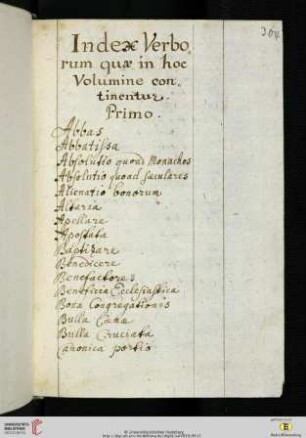 Index Verbo
rum quæ in hoc
Volumine con,
tinentur.
Primo.
Abbas
Abbatissa
Absolutio quoad Monachos
Absolutio quoad sæculares
Alienatio bonorum
Altaria
Apellare
Apostata
Baptizare
Benedicere
Benefactores
Beneficia Ecclesiastica
Bona Congregationis
Bulla Cænæ
Bulla Cruciata
Canonica portio
UNIVERSITÄTS-
BIBLIOTHEK
HEIDELBERG
© Universitätsbibliothek Heidelberg